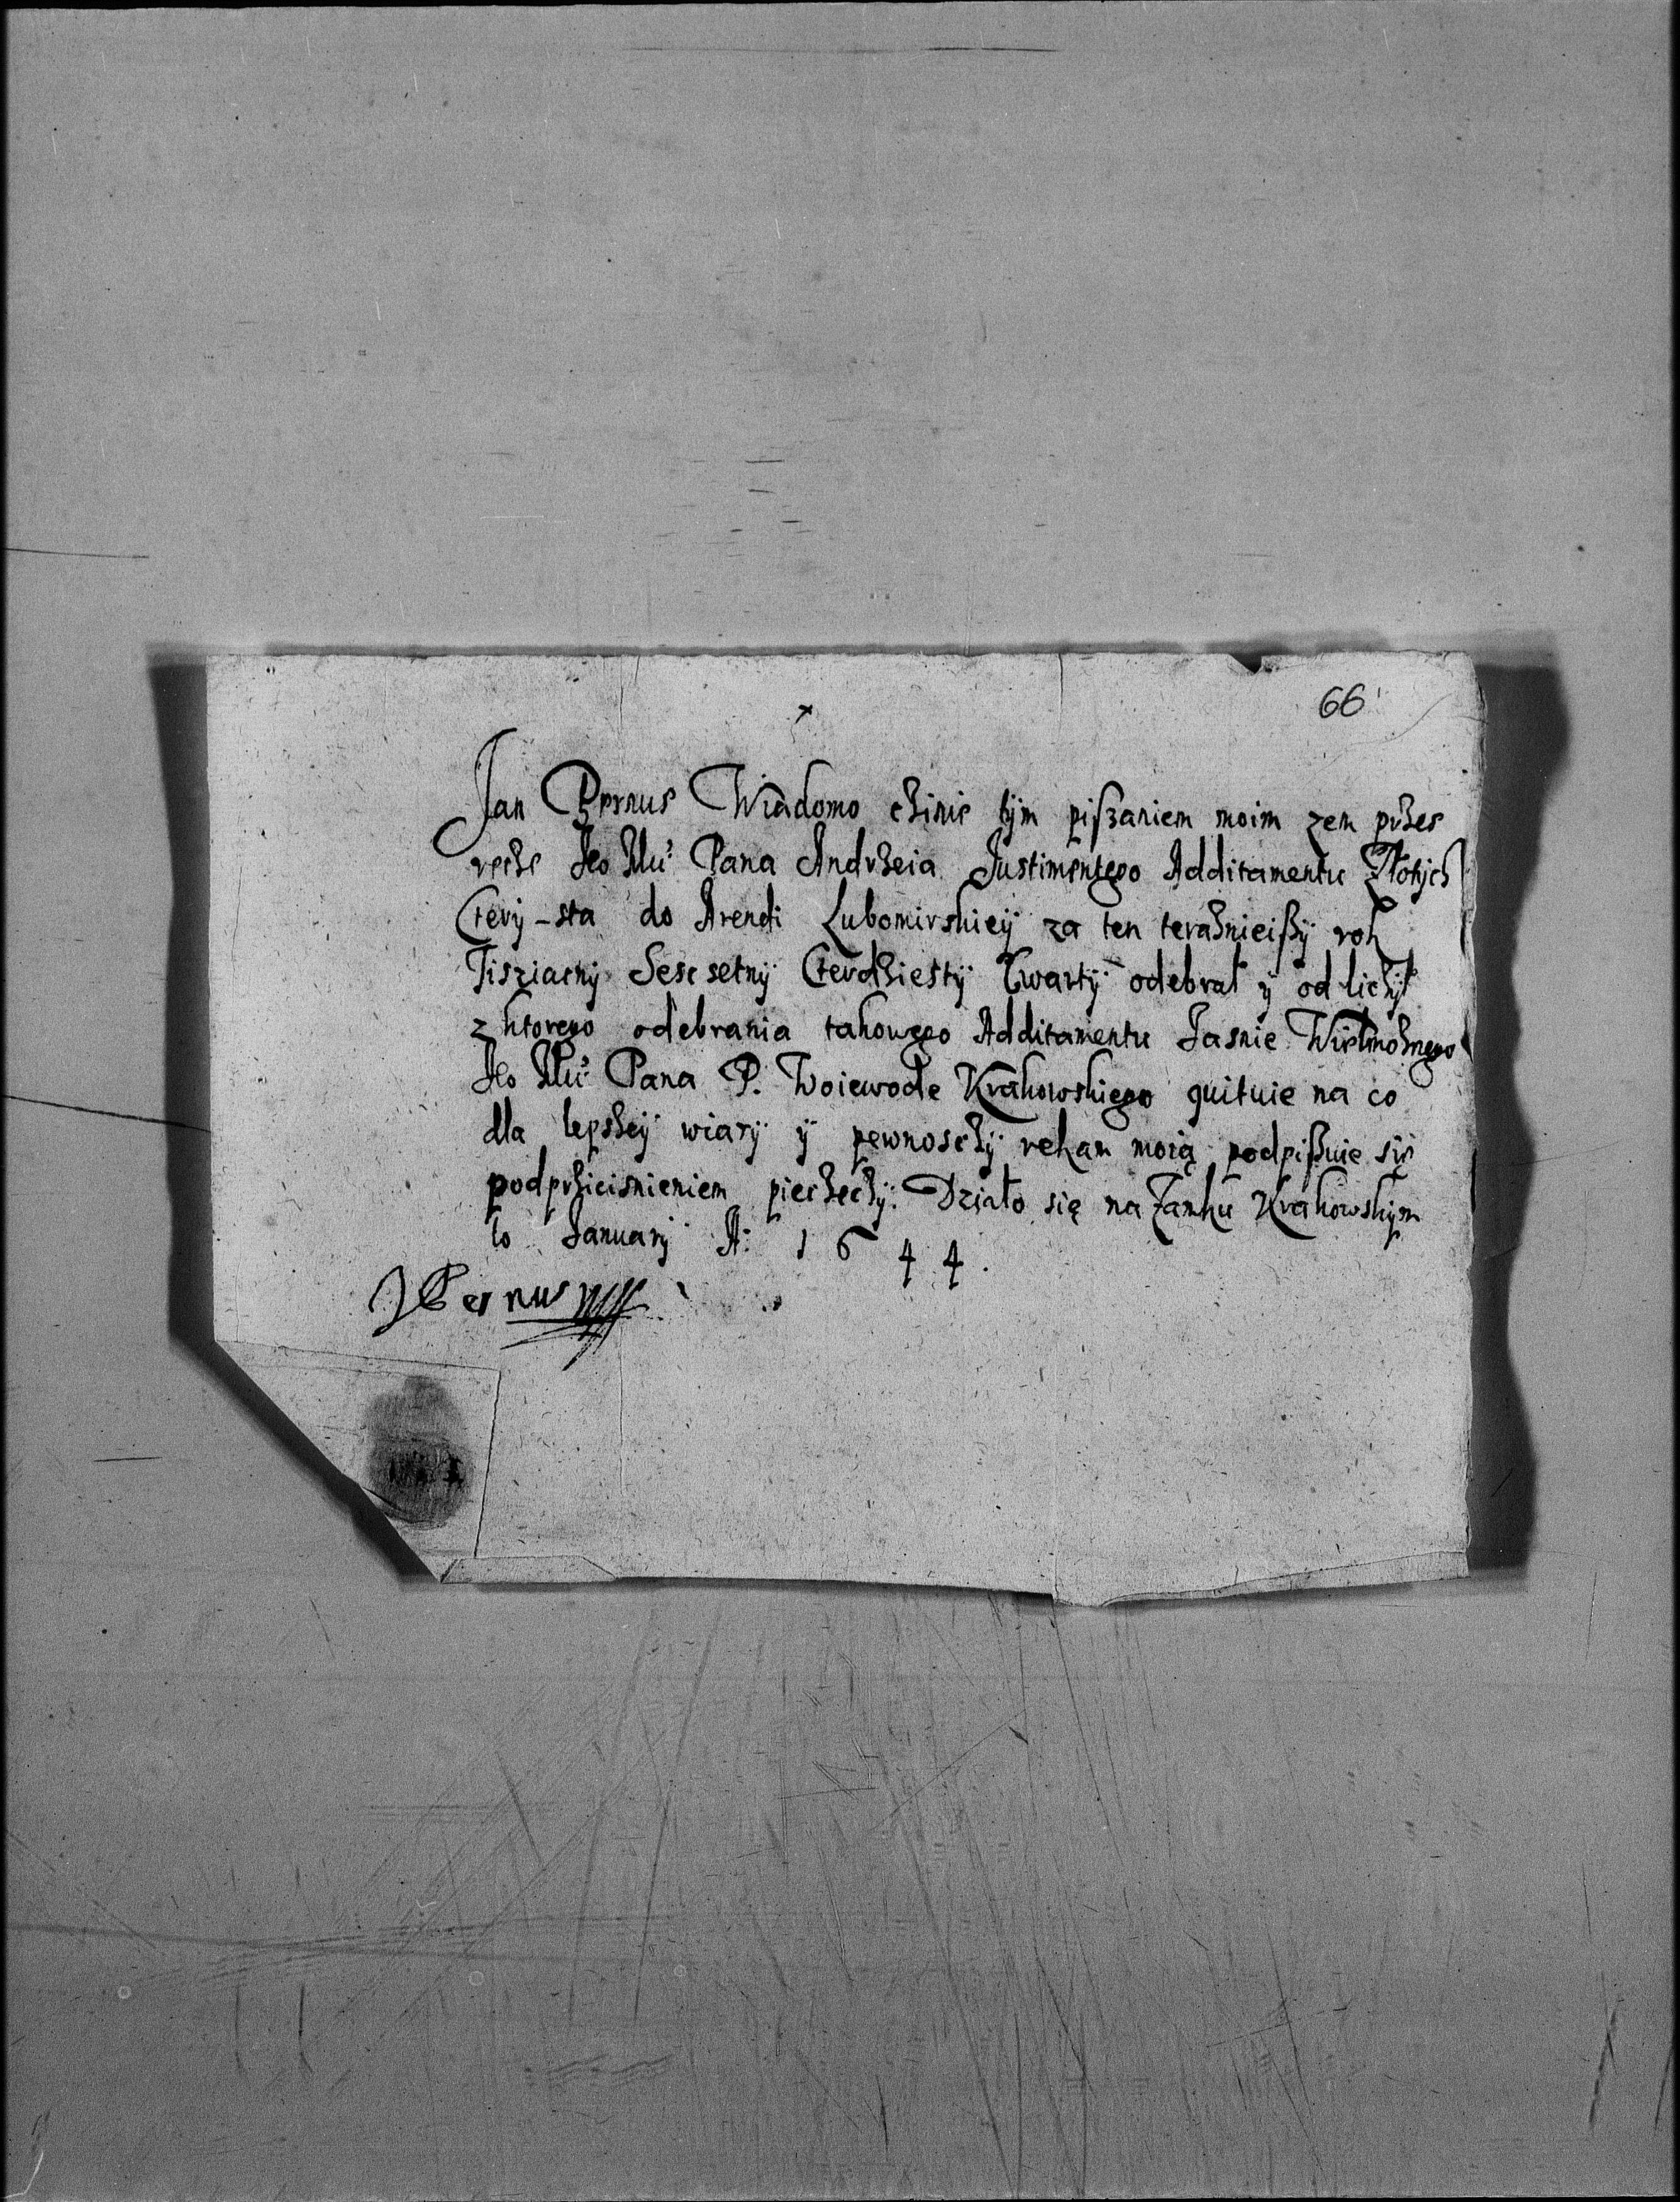 66
Jan Pernus Wiadomo chinie tÿm pißaniem moim zem przes
recze Jeo Mci Pana Andrzeia Justimontego Additamentu Złotÿch
Cterÿ-sta do Arendi Lubomirskieÿ za ten terazñieißÿ rok
Tisziacnÿ Sesc setnÿ Cterdziestÿ Cwartÿ odebrał ÿ od liczÿł
z ktorego odebrania takowego Additamentu Jasnie Wielmoznego
Jeo Mci Pana P. Woiewode Krakowskiego quituie na co
dla lepszeÿ wiarÿ ÿ pewnosczÿ rekam moią podpißuie się
podprzicisnieniem pieczeczÿ: Działo się na Zamku Krakowskÿm
to Januarÿ A: 1644.
JPernus